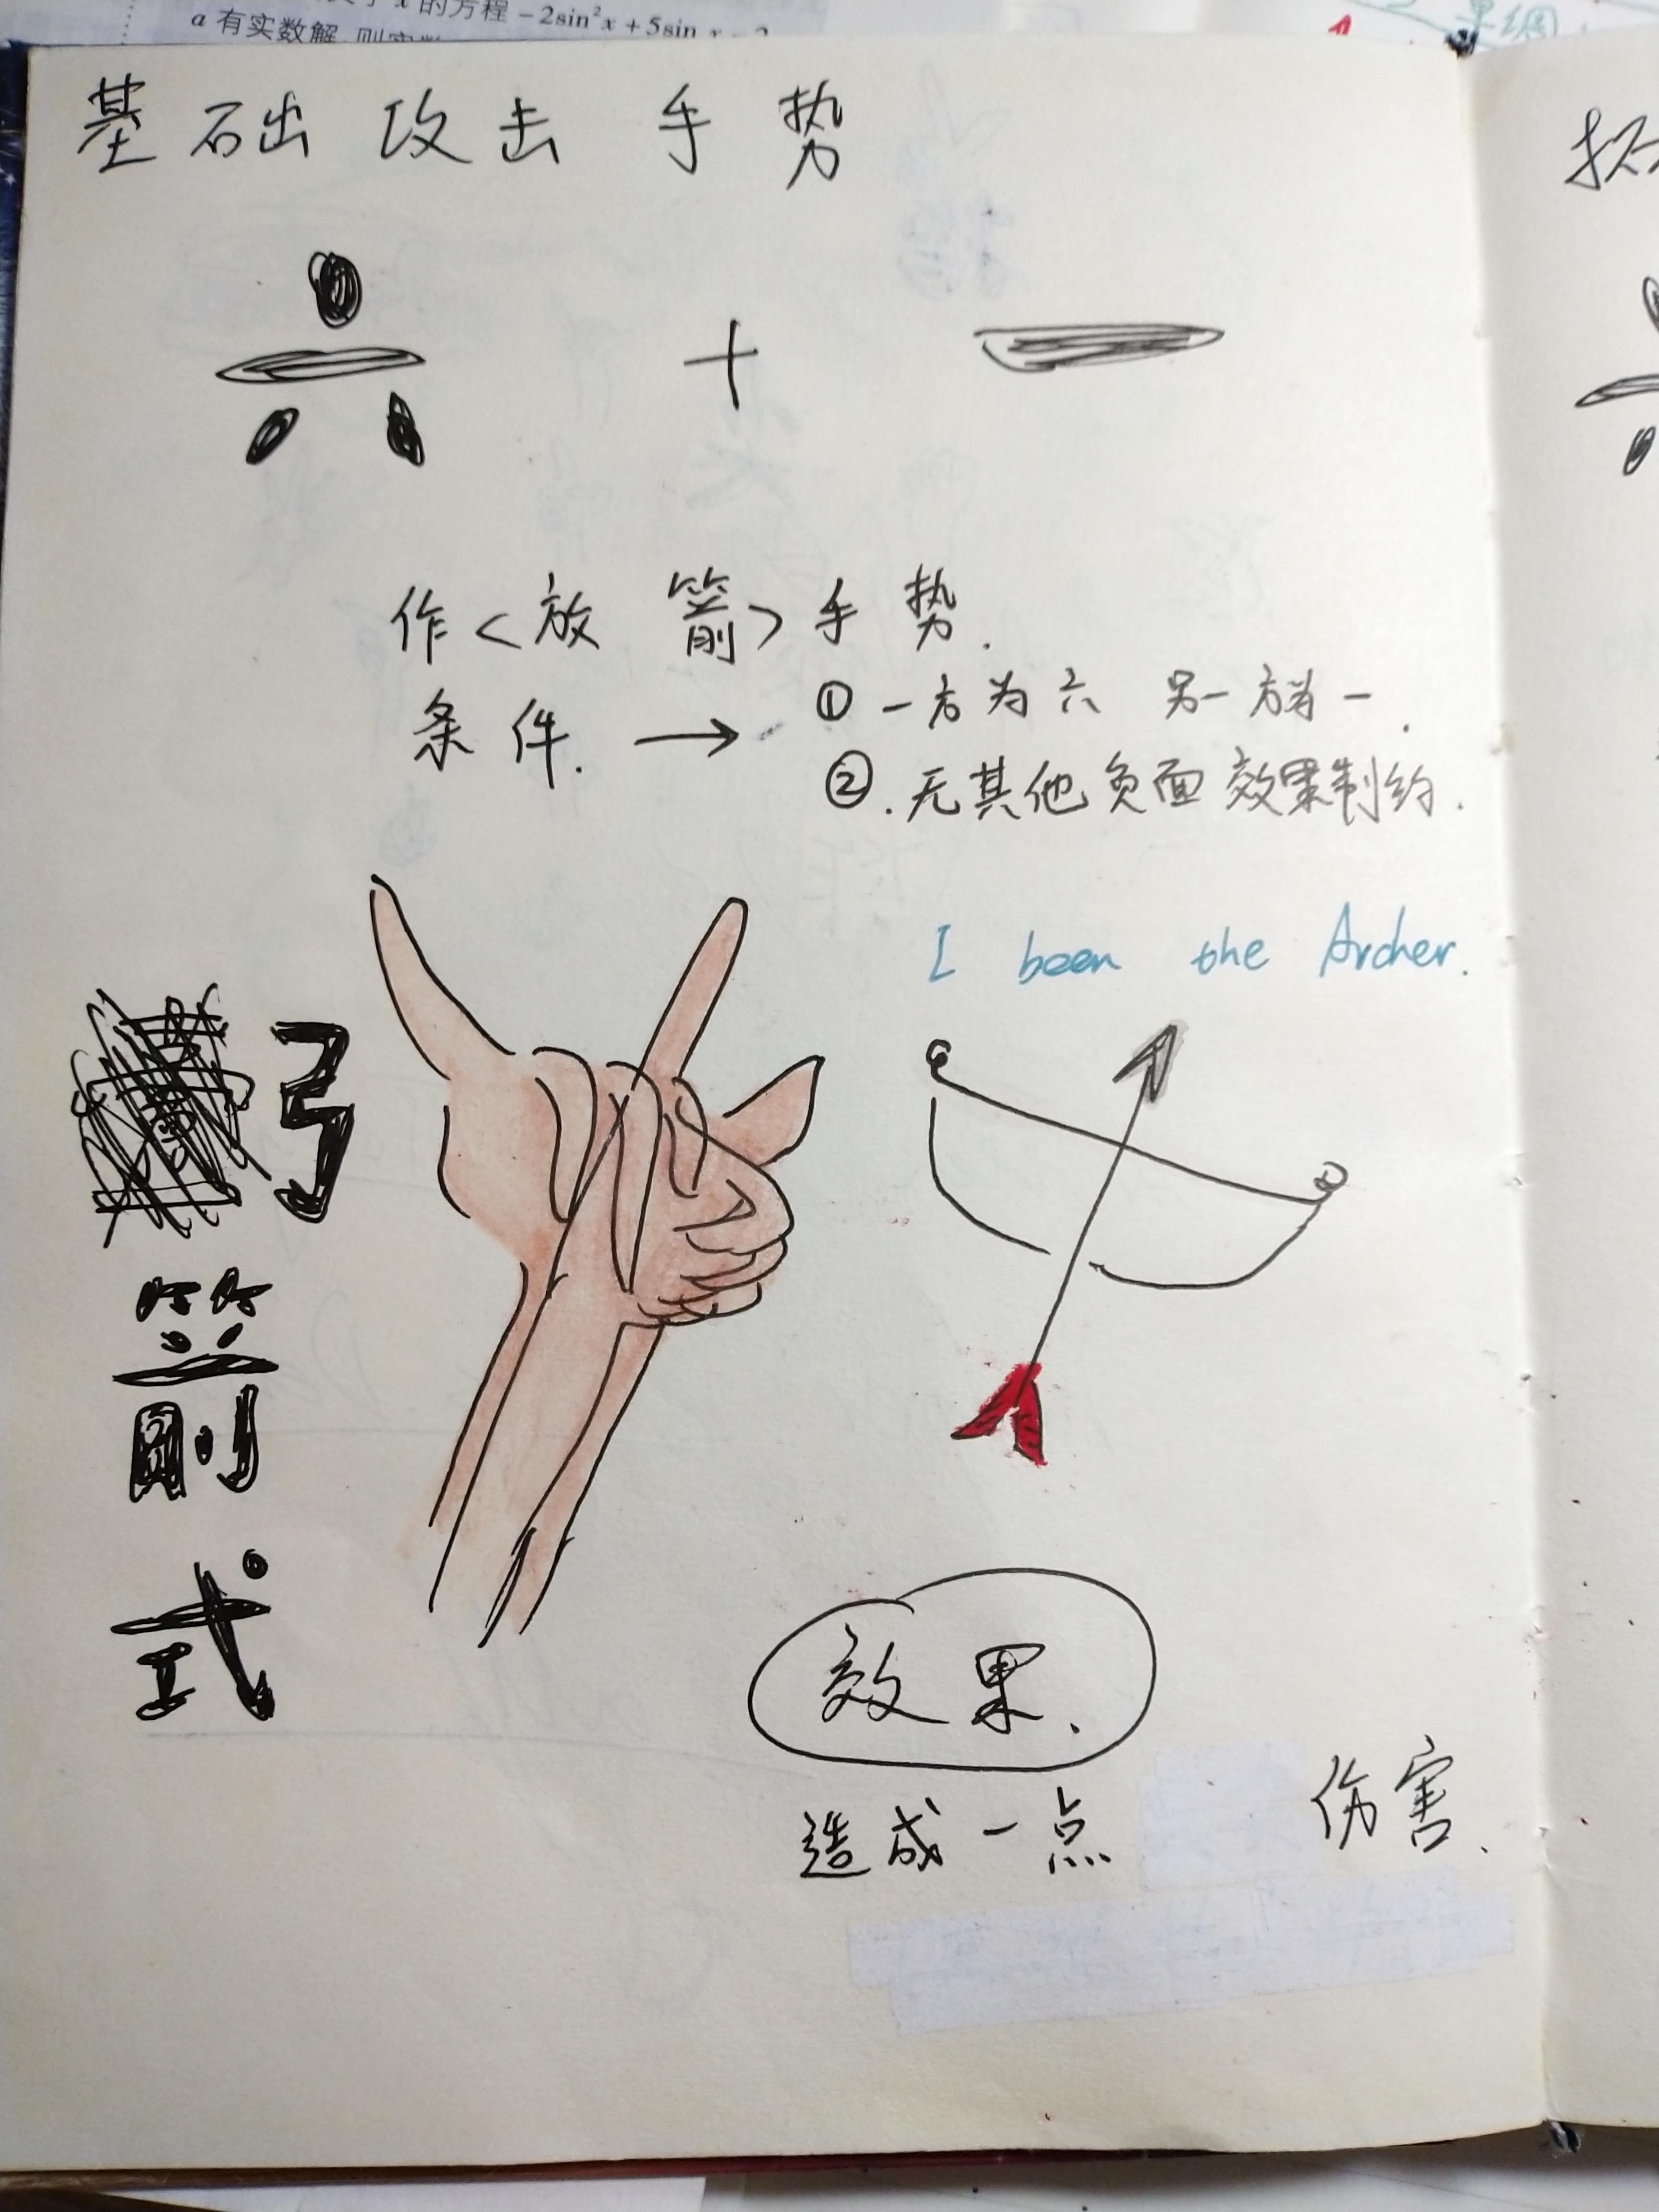 的方程-2sin²x+5sin x-2
a有实数解,则实数
果绸
基础攻击手势
六 + 一
作<放箭>手势.
条件. → ①一方为六 另一方为一.
②.无其他负面效果制约.
I been the Archer.
弓
箭
式
效果.
造成一点 伤害.